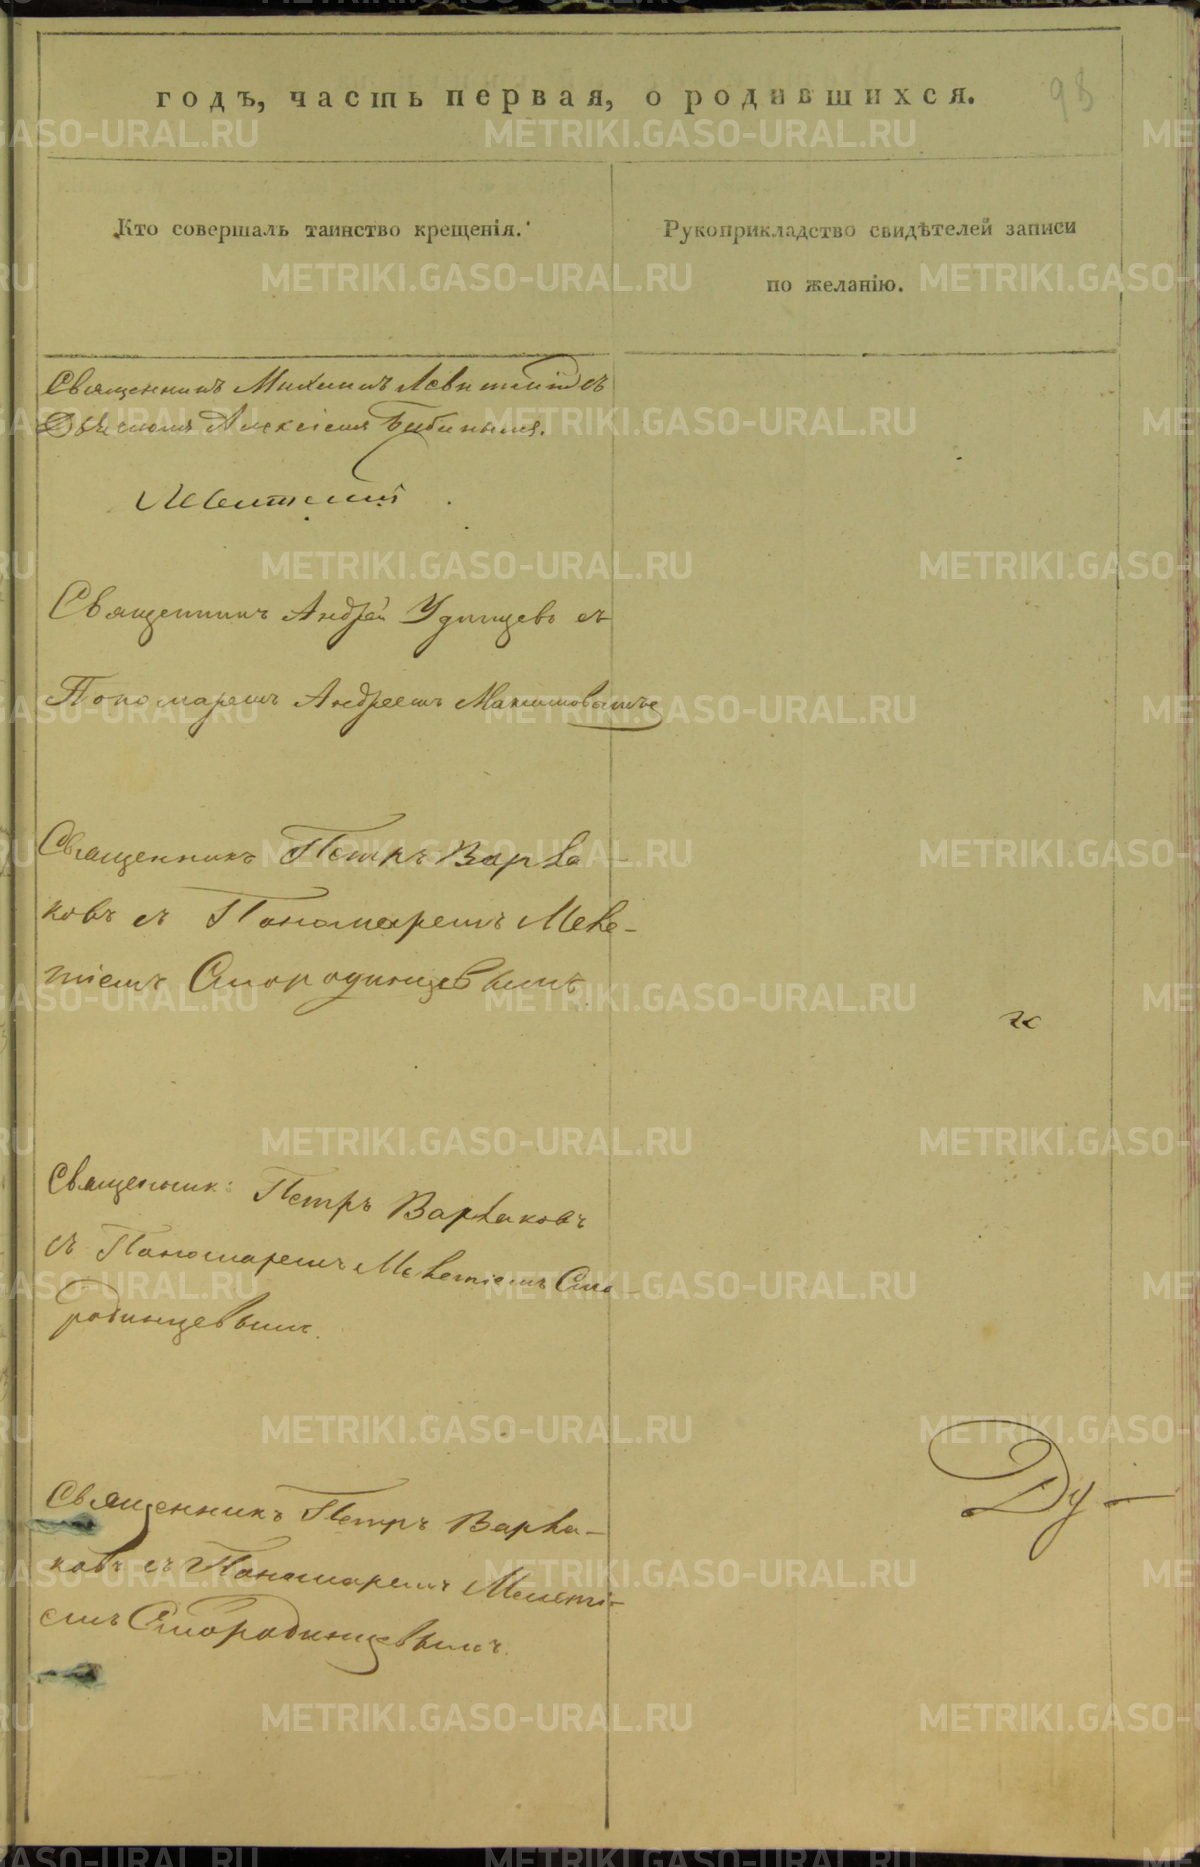 годъ, часть первая, о родившихся.
98
Кто совершалъ таинство крещенія.
Рукоприкладство свидѣтелей записи
по желанію.
Священникъ Михаилъ Левитскій съ
Дьячкомъ Алексіемъ Бабинымъ.
Левитскій
Священникъ Андрей Удинцевъ съ
Пономаремъ Андреемъ Максимовымъ
Священникъ Петръ Варва-
ковъ съ Пономаремъ Меле-
тіемъ Смородинцевымъ
Священник: Петръ Варваковъ
съ Пономаремъ Мелетіемъ Смо-
родинцевымъ.
Священникъ Петръ Варва-
ковъ съ Пономаремъ Мелеті-
емъ Смородинцевымъ.
Ду-
METRIKI.GASO-URAL.RU